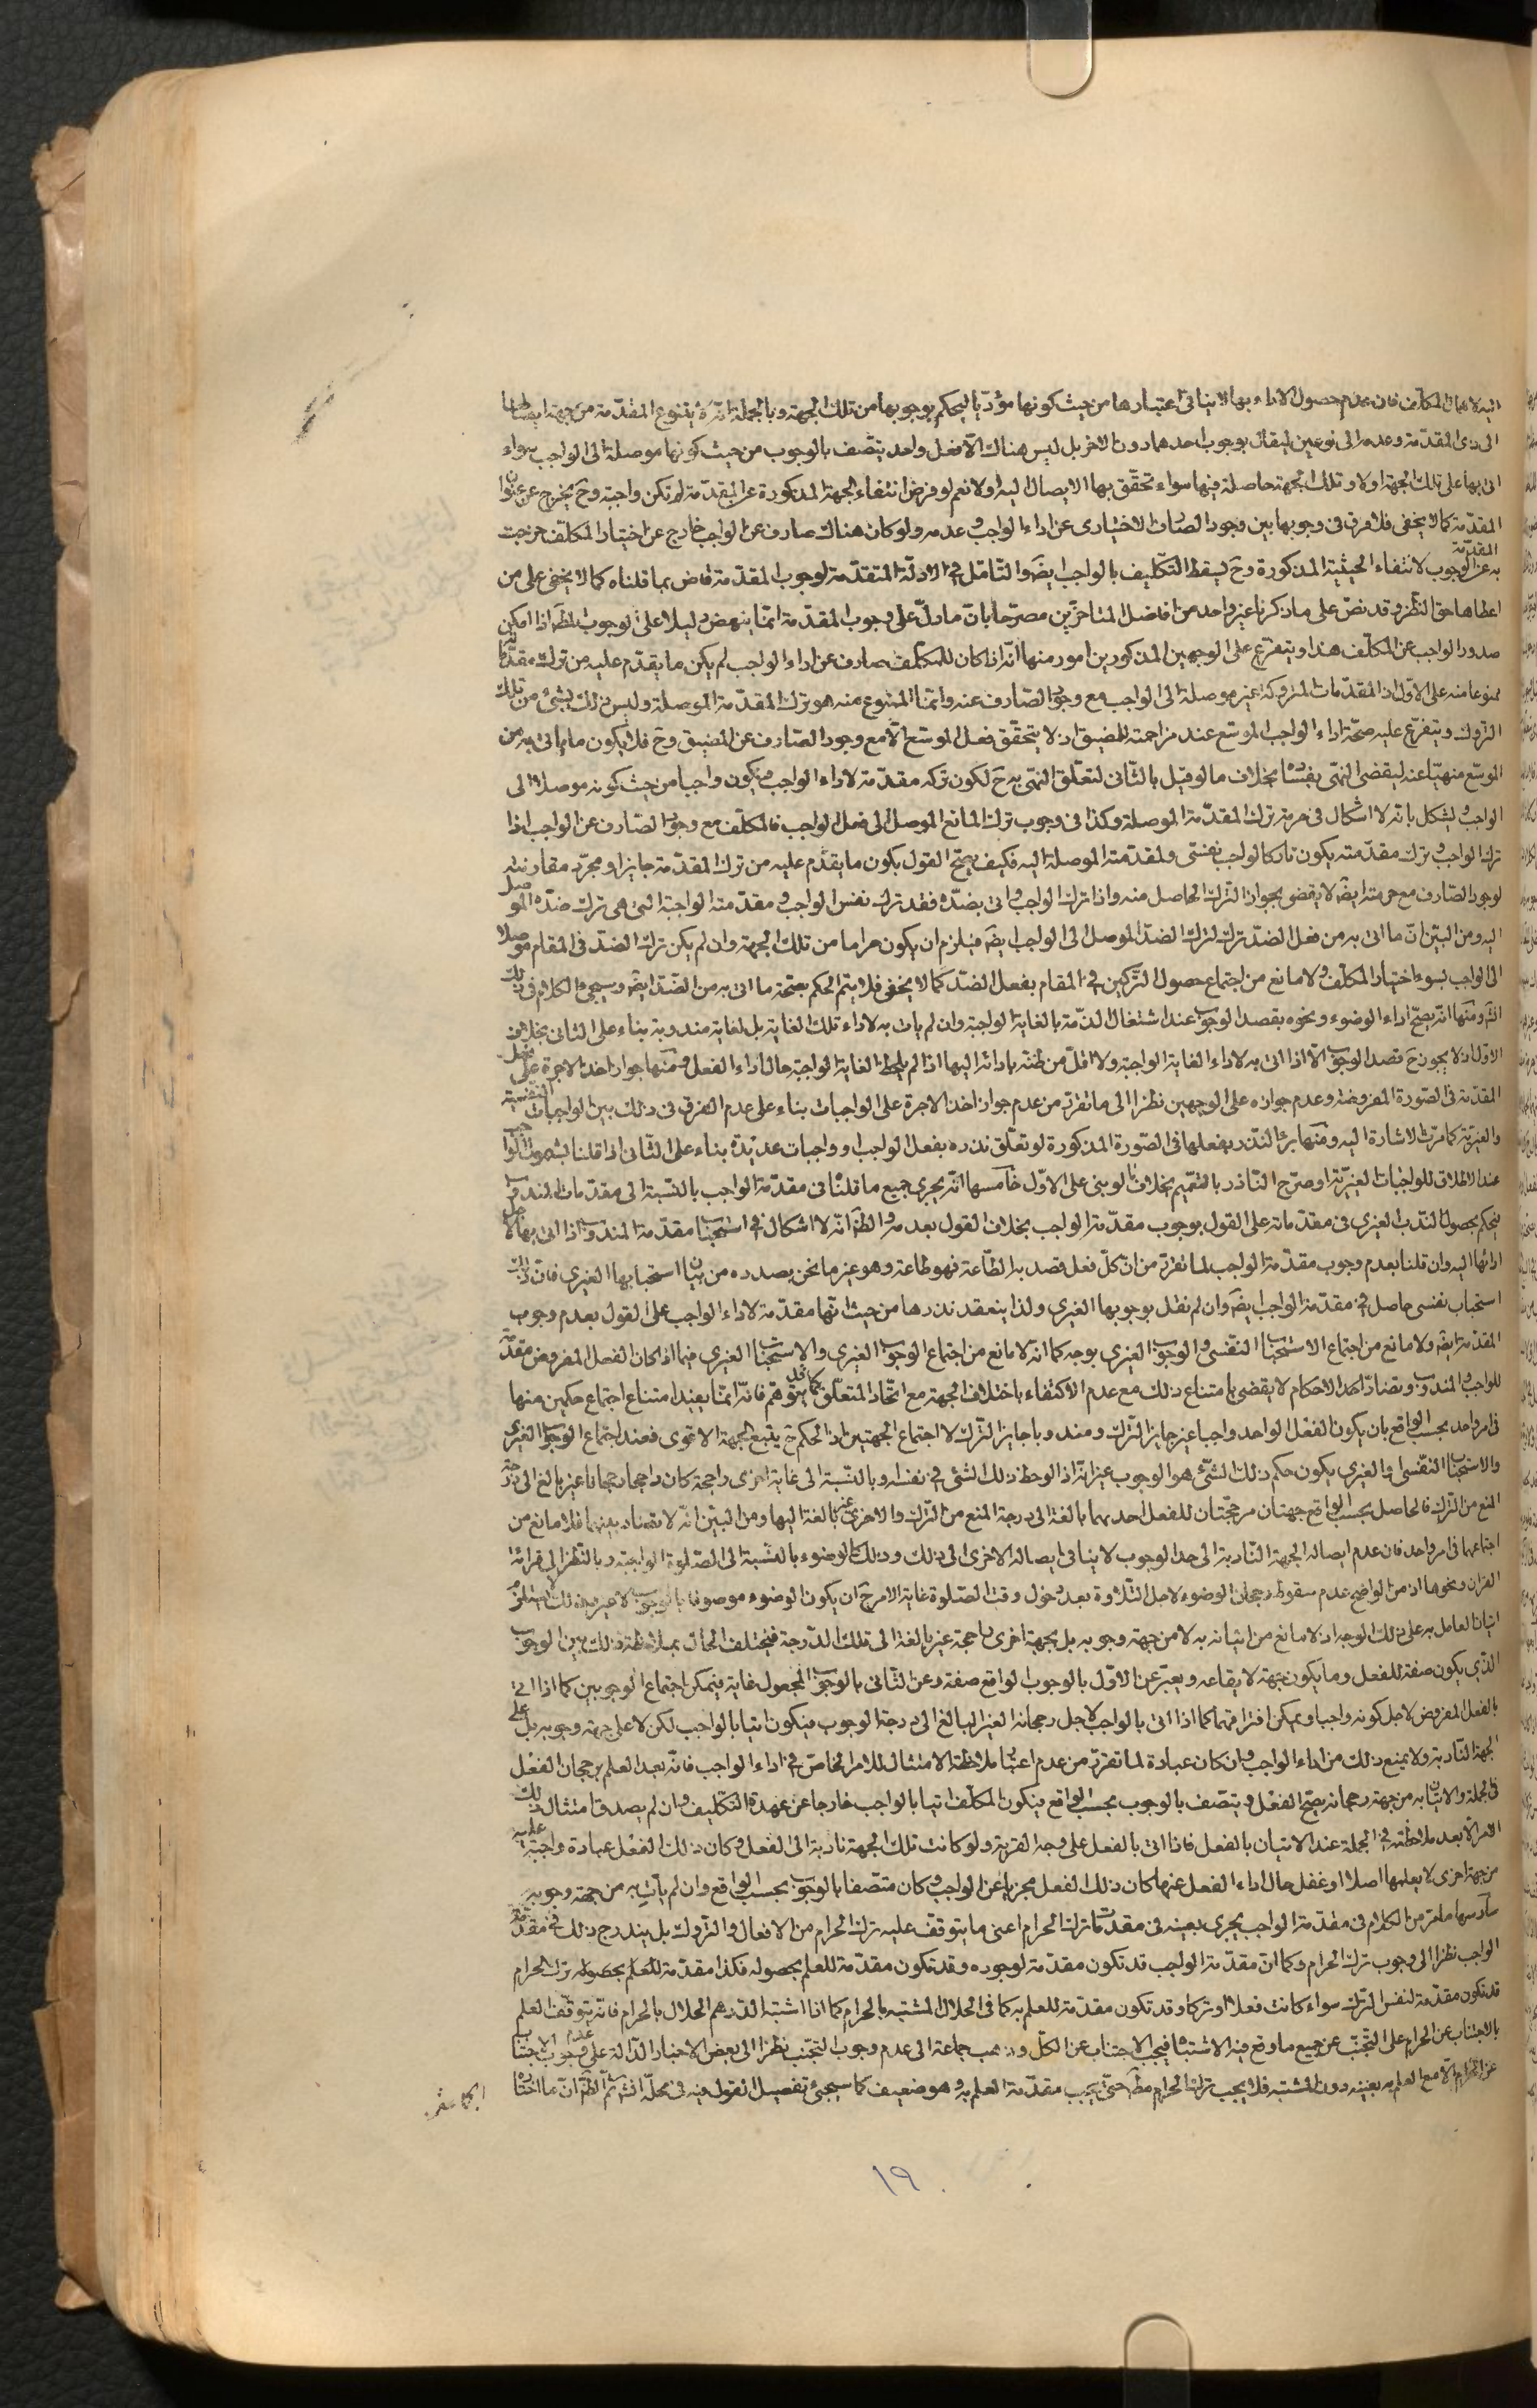 اليه لاهمال المكلّف فان عدم حصول الاداء بها لا ينافى اعتبارها من حيث كونها مؤدّيا ليحكم بوجوبها من تلك الجهة وبالجملة انّه لا يتنوع المقدّمة من جهة ايصالها
الى ذى المقدّمة وعدمه الى نوعين ليقال بوجوب احدهما دون الاخر بل ليس هناك الّا فعل واحد يتّصف بالوجوب من حيث كونها موصلة الى الواجب سواء
اتى بها على تلك الجهة اولا وتلك الجهة حاصلة فيها سواء تحقّق بها الايصال اليه اولا نعم لو فرض انتفاء الجهة المذكورة عن المقدّمة لم تكن واجبة وح يخرج عن عنوان
المقدّمة كما لا يخفى فلا فرق فى وجوبها بين وجود الصّارف الاختيارى عن اداء الواجب وعدمه ولو كان هناك صارف عن الواجب خارج عن اختيار المكلّف خرجت
به المقدّمة عن الوجوب لانتفاء الحيثية المذكورة وح يسقط التّكليف بالواجب ايضَ والتّامّل فى الادلّة المتقدّمة لوجوب المقدّمة قاض بما قلناه كما لا يخفى على من
اعطاها حق النّظر وقد نصّ على ما ذكرنا غير واحد من افاضل المتاخرّين مصرّحا بانّ ما دلّ على وجوب المقدّمة انّما ينهض دليلا على الوجوب لظَ اذا امكن
صدور الواجب عن المكلّف هذا ويتفرّع على الوجهين المذكورين امور منها انّه اذا كان للمكلّف صارف عن اداء الواجب لم يكن ما يقدّم عليه من ترك مقدّماته
ممنوعا منه على الاوّل اذ المقدّمات المتروكة غير موصلة الى الواجب مع وجود الصّارف عنه وانّما الممنوع منه هو ترك المقدّمة الموصلة وليس ذلك بشئ من تلك
التروك ويتفرّع عليه صحّة اداء الواجب الموسّع عند مزاحمته للمضيق اذ لا يتحقّق فعل الموسّع الّا مع وجود الصّارف عن المضيق وح فلا يكون ما ياتى به من
الموسّع منهيّا عنه ليقضى النّهى بفسٰا بخلاف ما لو قيل بالثّانى لتعلّق النّهى به ح لكون تركه مقدّمة لاداء الواجب فيكون واجبا من حيث كونه موصلا الى
الواجب ويشكل بانّه لا اشكال فى حرمة ترك المقدّمة الموصلة وكذا فى وجوب ترك المانع الموصل الى فعل الواجب فالمكلّف مع وجود الصّارف عن الواجب اذا
ترك الواجب وترك مقدّمته يكون تاركا لواجب نفسى ولمقدّمته الموصلة اليه فكيف يصحّ القول بكون ما يقدّم عليه من ترك المقدّمة جايزا ومجرّد مقارنته
لوجود الصّارف مع حرمته ايضَ لا يقضى بجواز التّرك الحاصل منه واذا ترك الواجب واتى بضدّه فقد ترك نفس الواجب ومقدّمته الواجبة التى هى ترك ضدّه الموصل
اليه ومن البيّن انّ ما اتى به من فعل الضدّ ترك لترك الضدّ الموصل الى الواجب ايضَ فيلزم ان يكون حراما من تلك الجهة وان لم يكن ترك الضدّ فى المقام موصلا
الى الواجب لسوء اختيار المكلّف ولا مانع من اجتماع حصول التّركين فى المقام بفعل الضدّ كما لا يخفى فلا يتم الحكم بصحّة ما اتى به من الضدّ ايضَ وسيجئ الكلام فى ذلك
انشَ ومنها انّه يصحّ اداء الوضوء ونحوه بقصد الوجوب عند اشتغال الذّمة بالغاية الواجبة وان لم يات به لاداء تلك الغاية بل لغاية مندوبة بناء على الثانى بخلاف
الاوّل اذ لا يجوز ح قصد الوجوب الّا اذا اتى به لاداء الغاية الواجبة ولا اقلّ من ظنّه بادائه اليها اذا لم يلحظ الغاية الواجبة حال اداء الفعل ومنها جواز اخذ الاجرة على فعل
المقدّمة فى الصّورة المفروضة وعدم جوازه على الوجهين نظرا الى ما تقرّر من عدم جواز اخذ الاجرة على الواجبات بناء على عدم الفرق فى ذلك بين الواجبات النّفسية
والغيريّة كما مرّت الاشارة اليه ومنها برئ النّذر بفعلها فى الصّورة المذكورة لو تعلّق نذره بفعل الواجب او واجبات عديدة بناء على الثّانى اذا قلنا بشمول الواجب
عند الاطلاق للواجبات الغيريّة او صرّح النّاذر بالتّعميم بخلاف ما لو بنى على الاوّل خامسها انّه يجرى جميع ما قلنا فى مقدّمة الواجب بالنّسبة الى مقدّمات المندوب
فيحكم بحصول النّدب الغيرى فى مقدّماته على القول بوجوب مقدّمة الواجب بخلاف القول بعدمه والظَ انّه لا اشكال فى استحباب مقدّمة المندوب اذا اتى بها لاجل
ادائها اليه وان قلنا بعدم وجوب مقدّمة الواجب لما تقرّر من انّ كلّ فعل قصد به الطّاعة فهو طاعة وهو غير ما نحن بصدده من بيان استحبابها الغيرى فان ذلك
استحباب نفسى حاصل فى مقدّمة الواجب ايضَ وان لم نقل بوجوبها الغيرى ولذا ينعقد نذرها من حيث انّها مقدّمة لاداء الواجب على القول بعدم وجوب
المقدّمة ايضَ ولا مانع من اجتماع الاستحباب النّفسى والوجوب الغيرى بوجه كما انّه لا مانع من اجتماع الوجوب الغيرى والاستحباب الغيرى فيما اذا كان الفعل المفروض مقدّمة
للواجب والمندوب وتضادّ احد الاحكام لا يقضى بامتناع ذلك مع عدم الاكتفاء باختلاف الجهة مع اتّحاد المتعلّق كما قد يتوهّم فانّه انّما يفيد امتناع اجتماع حكمين منها
فى امر واحد بحسب الواقع بان يكون الفعل الواحد واجبا غير جايز التّرك ومندوبا جايز التّرك لا اجتماع الجهتين اذ الحكم ح يتبع الجهة الاقوى فعند اجتماع الوجوب الغيرى
والاستحباب النّفسى او الغيرى يكون حكم ذلك الشّئ هو الوجوب غير انّه اذا لوحظ ذلك الشئ فى نفسه او بالنّسبة الى غاية اخرى راجحة كان راجحا رجحانا غير بالغ الى درجة
المنع من التّرك فالحاصل بحسب الواقع جهتان مرجّحتان للفعل احدٰهما بالغة الى درجة المنع من التّرك والاخرى غير بالغة اليها ومن البيّن انّه لا تضادّ بينهما فلا مانع من
اجتماعهما فى امر واحد فان عدم ايصاله الجهة النّادبة الى حدّ الوجوب لا ينافى ايصاله الاخرى الى ذلك وذلك كالوضوء بالنّسبة الى الصّلوة الواجبة وبالنّظر الى قرائة
القران ونحوها اذ من الواضح عدم سقوط رجحان الوضوء لاجل التّلاوة بعد دخول وقت الصّلوة غاية الامر ح ان يكون الوضوء موصوفا بالوجوب لا غير وذلك لا يستلزم
اتيان العامل به على ذلك الوجه اذ لا مانع من اتيانه به لا من جهة وجوبه بل بجهة اخرى راجحة غير بالغة الى تلك الدّرجة فيختلف الحال بملاحظة ذلك بين الوجوب
الذّى يكون صفة للفعل وما يكون جهة لايقاعه ويعبّر عن الاوّل بالوجوب الواقع صفة وعن الثّانى بالوجوب المجعول غاية فيمكن اجتماع الوجوبين كما اذا اتى
بالفعل المفروض لاجل كونه واجبا ويمكن افتراقهما كما اذا اتى بالواجب لاجل رجحانه الغير البالغ الى درجة الوجوب فيكون اتيا بالواجب لكن لا على جهة وجوبه بل على
الجهة النّادبة ولا يمنع ذلك من اداء الواجب وان كان عبادة لما تقرّر من عدم اعتبار ملاحظة الامتثال للامر الخاصّ فى اداء الواجب فانّه بعد العلم برجحان الفعل
فى الجملة والاتيان به من جهة رجحانه يصحّ الفعل ويتّصف بالوجوب بحسب الواقع فيكون المكلّف اتيا بالواجب خارجا عن عهدة التّكليف وان لم يصدق امتثال ذلك
الامر الّا بعد ملاحظته فى الجملة عند الاتيان بالفعل فاذا اتى بالفعل على وجه القربة ولو كانت تلك الجهة نادبة الى الفعل وكان ذلك الفعل عبادة واجبة عليه
من جهة اخرى لا يعلمها اصلا او غفل حال اداء الفعل عنها كان ذلك الفعل مجزيا عن الواجب وكان متّصفا بالوجوب بحسب الواقع وان لم يات به من جهة وجوبه
سادسها ما مرّ من الكلام فى مقدّمة الواجب يجرى بعينه فى مقدّمات ترك الحرام اعنى ما يتوقّف عليه ترك الحرام من الافعال والتّروك بل يندرج ذلك فى مقدّمة
الواجب نظرا الى وجوب ترك الحرام وكما انّ مقدّمة الواجب قد تكون مقدّمة لوجوده وقد تكون مقدّمة للعلم بحصوله فكذا مقدّمة للعلم بحصوله ترك الحرام
قد تكون مقدّمة لنفس التّرك سواء كانت فعلا او تركا وقد تكون مقدّمة للعلم به كما فى الحلال المشتبه بالحرام كما اذا اشتبه الدّرهم الحلال بالحرام فانّه يتوقّف العلم
بالاجتناب عن الحرام على التّجنّب عن جميع ما وقع فيه الاشتباه فيجب الاجتناب عن الكلّ وذهب جماعة الى عدم وجوب التجنّب نظرا الى بعض الاخبار الدّالة على عدم وجوب الاجتناب
عن الحرام الّا مع العلم به بعينه دون المشتبه فلا يجب ترك الحرام مطَ حتّى يجب مقدّمة العلم به وهو ضعيف كما سيجئ تفصيل القول فيه فى محلّه انشَ ثمّ الظّ انّ ما اختاره
١٩